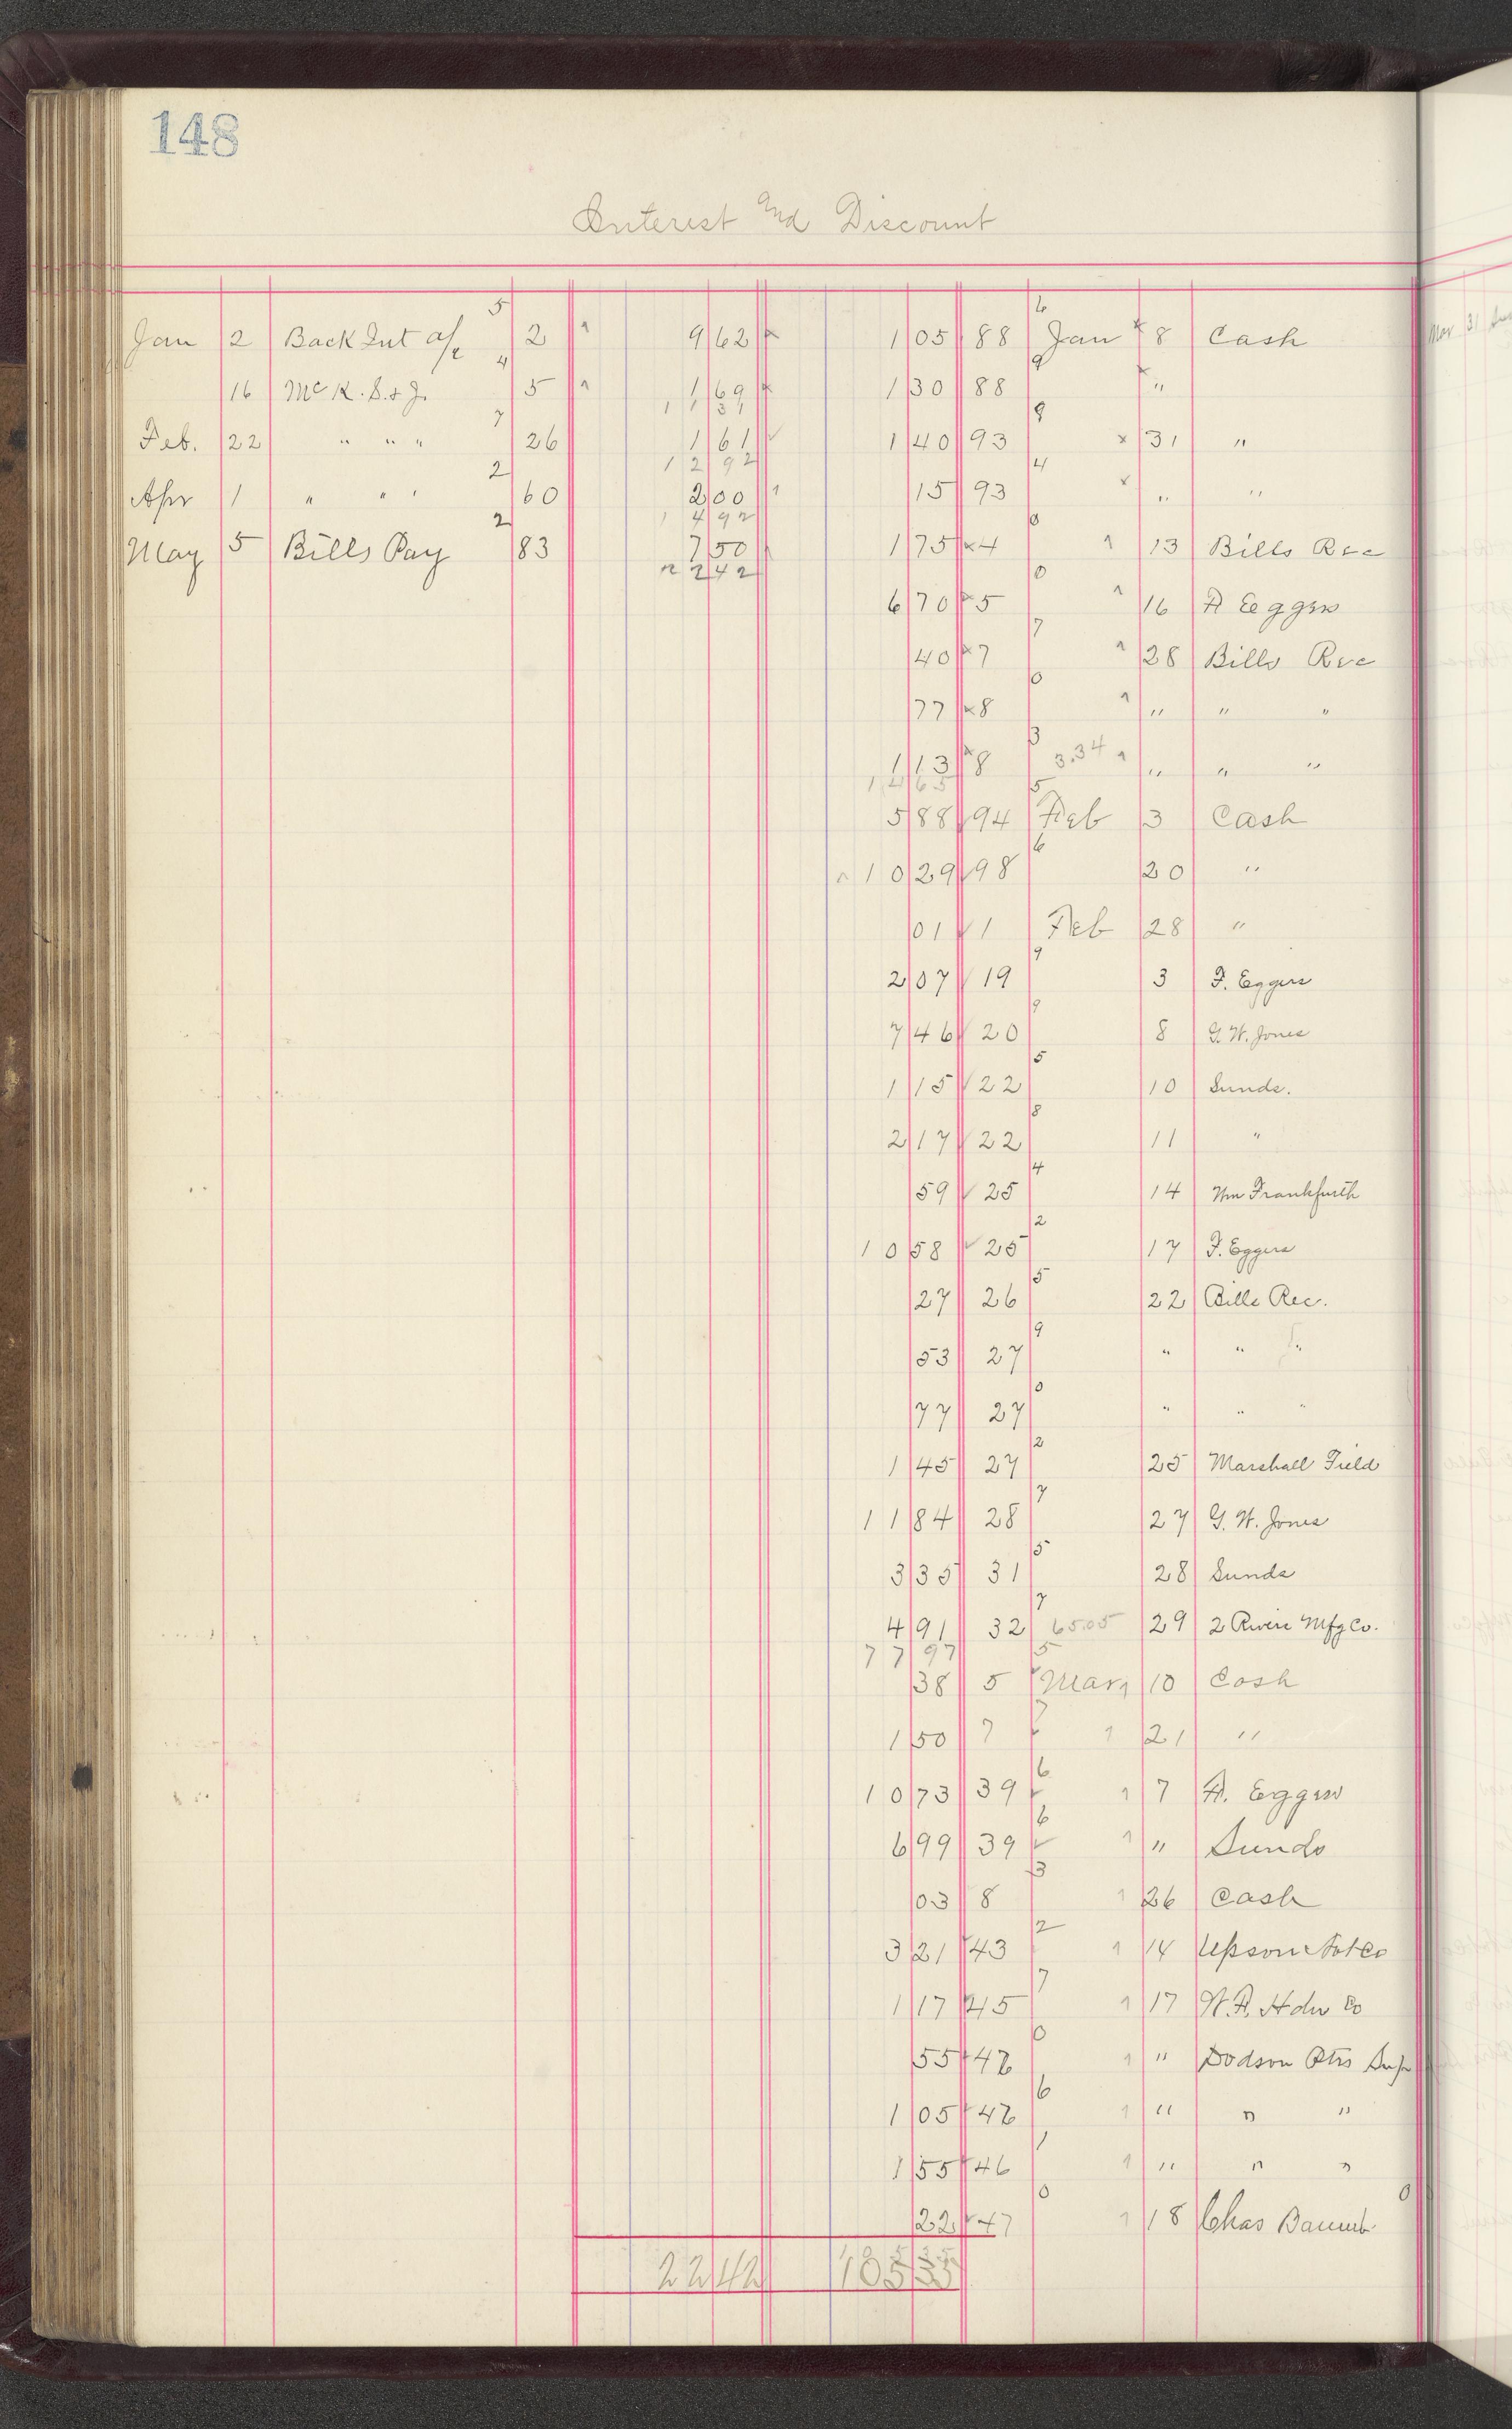 148
Interest and Discount
5 6
Jan 2 Back Int a/c 2 9 62 1 05 88 Jan 8 Cash
4 9
16 McK. S. & J. 5 1 69 1 30 88 "
11 31
7 9
Feb. 22 " " " 26 1 61 1 40 93 31 "
12 92
2 4
Apr 1 " " " 60 2 00 15 93 " "
14 92
2 0
May 5 Bills Pay 83 7 50 1 75 4 13 Bills Rec
22 42
0
6 70 5 16 F Eggers
7
40 7 28 Bills Rec
0
77 8 " " "
3
1 13 8 3.34 " " "
14 65
5
5 88 94 Feb 3 Cash
6
10 29 98 20 "
01 1 Feb 28 "
9
2 07 19 3 F. Eggers
9
7 46 20 8 G. W. Jones
5
1 15 22 10 Sunds.
8
2 17 22 11 "
4
59 25 14 Wm Frankfurth
2
10 58 25 17 F. Eggers
5
27 26 22 Bills Rec.
9
53 27 " " "
0
77 27 " " "
2
1 45 27 25 Marshall Field
7
11 84 28 27 G. W. Jones
5
3 35 31 28 Sunds
7
4 91 32 65.05 29 2 Rivers Mfg Co.
77 97
5
38 5 Mar 10 Cash
7
1 50 7 21 "
6
10 73 39 7 F. Eggers
6
6 99 39 " Sunds
3
03 8 26 Cash
2
3 21 43 14 Upson Nut Co
7
1 17 45 17 W. F. Hdw Co
0
55 46 " Dodson Ptrs Sup
6
1 05 46 " " "
1
1 55 46 " " "
0 0
22 47 18 Chas
22 42 105 35